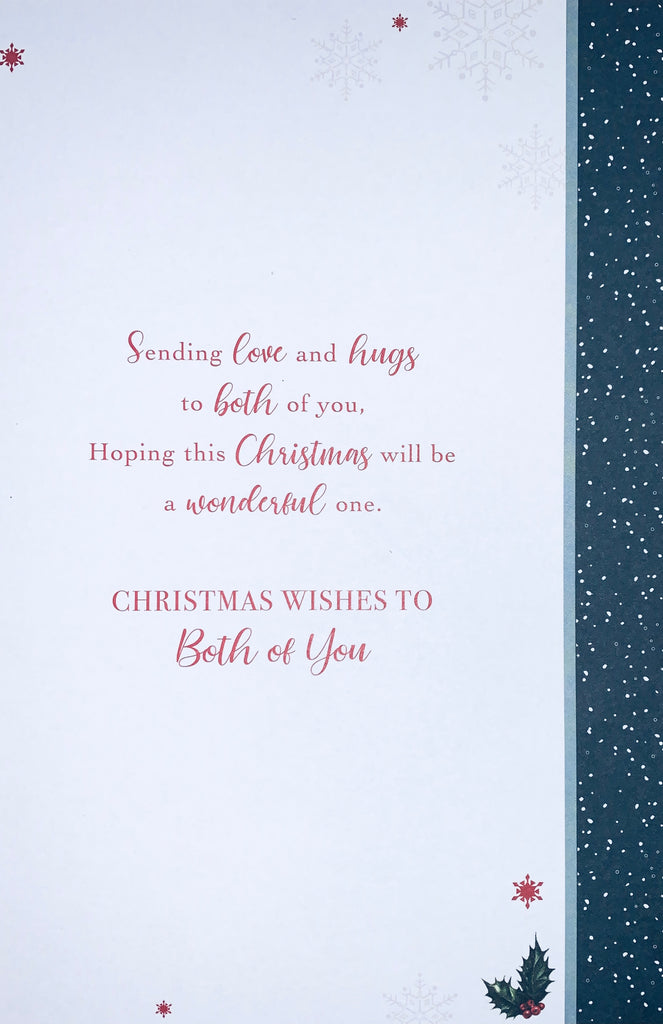 Sending love and hugs
to both of you,
Hoping this Christmas will be
a wonderful one.
CHRISTMAS WISHES TO
Both of You